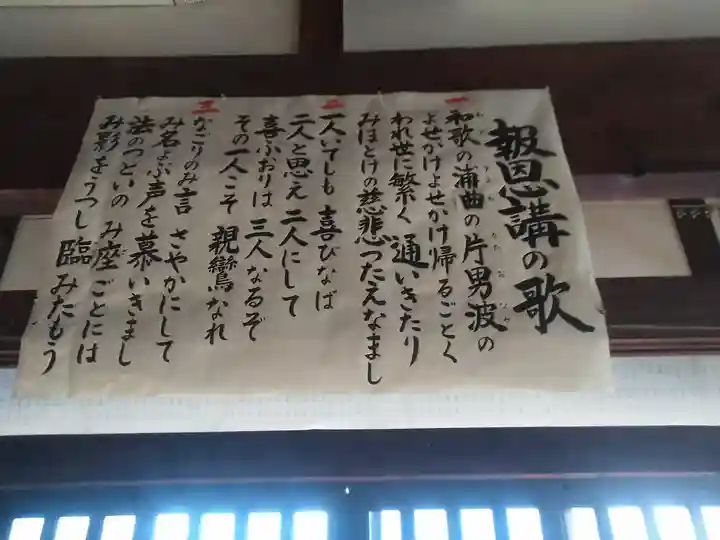 報恩講の歌
一
和歌の浦曲の片男波の
よせかけよせかけ帰るごとく
われ世に繁く通いきたり
みほとけの慈悲つたえなまし
二
一人いてしも喜びなば
二人と思え二人にして
喜ぶおりは三人なるぞ
その一人こそ親鸞なれ
三
なごりのみ言さやかにして
み名よぶ声を慕いきまし
法のつどいのみ座ごとには
み影をうつし臨みたもう